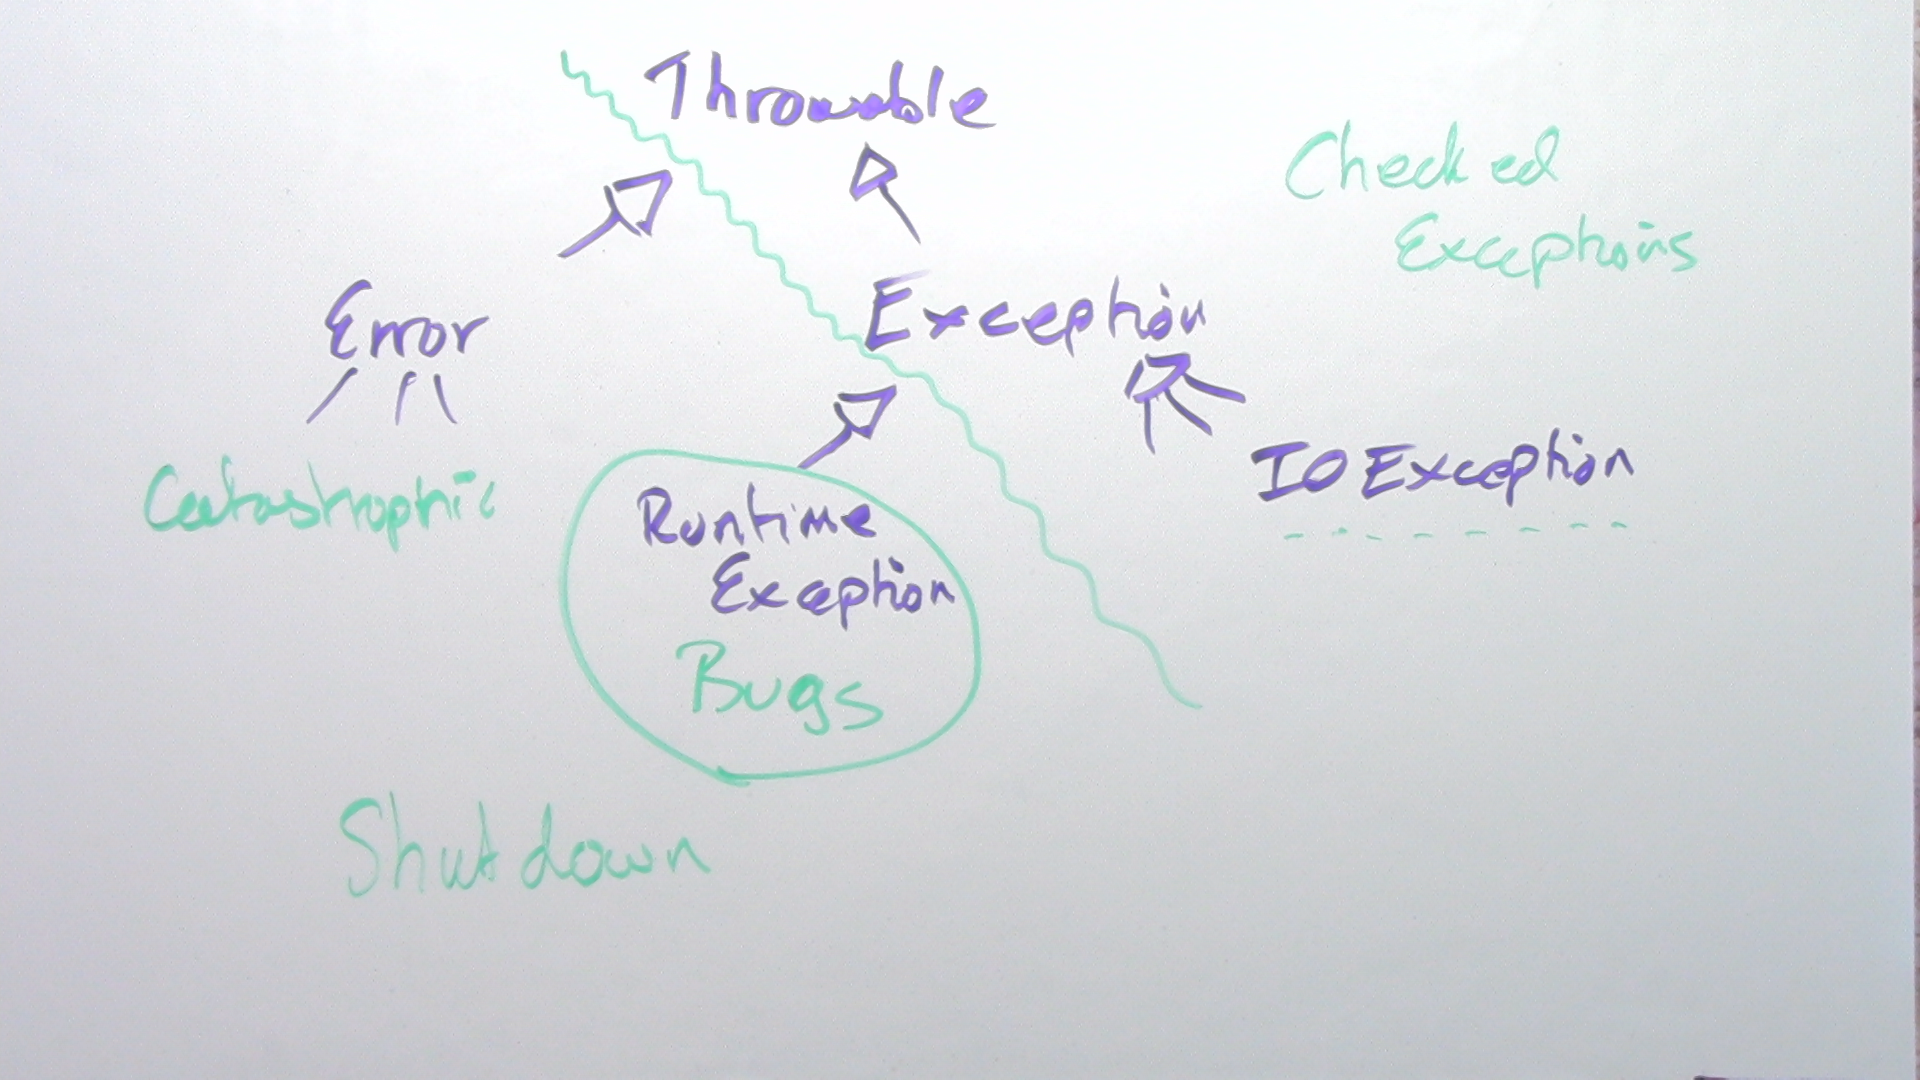 Throwable
Checked
Exceptions
Error
Exception
Catastrophic
IO Exception
Runtime
Exception
Bugs
Shutdown